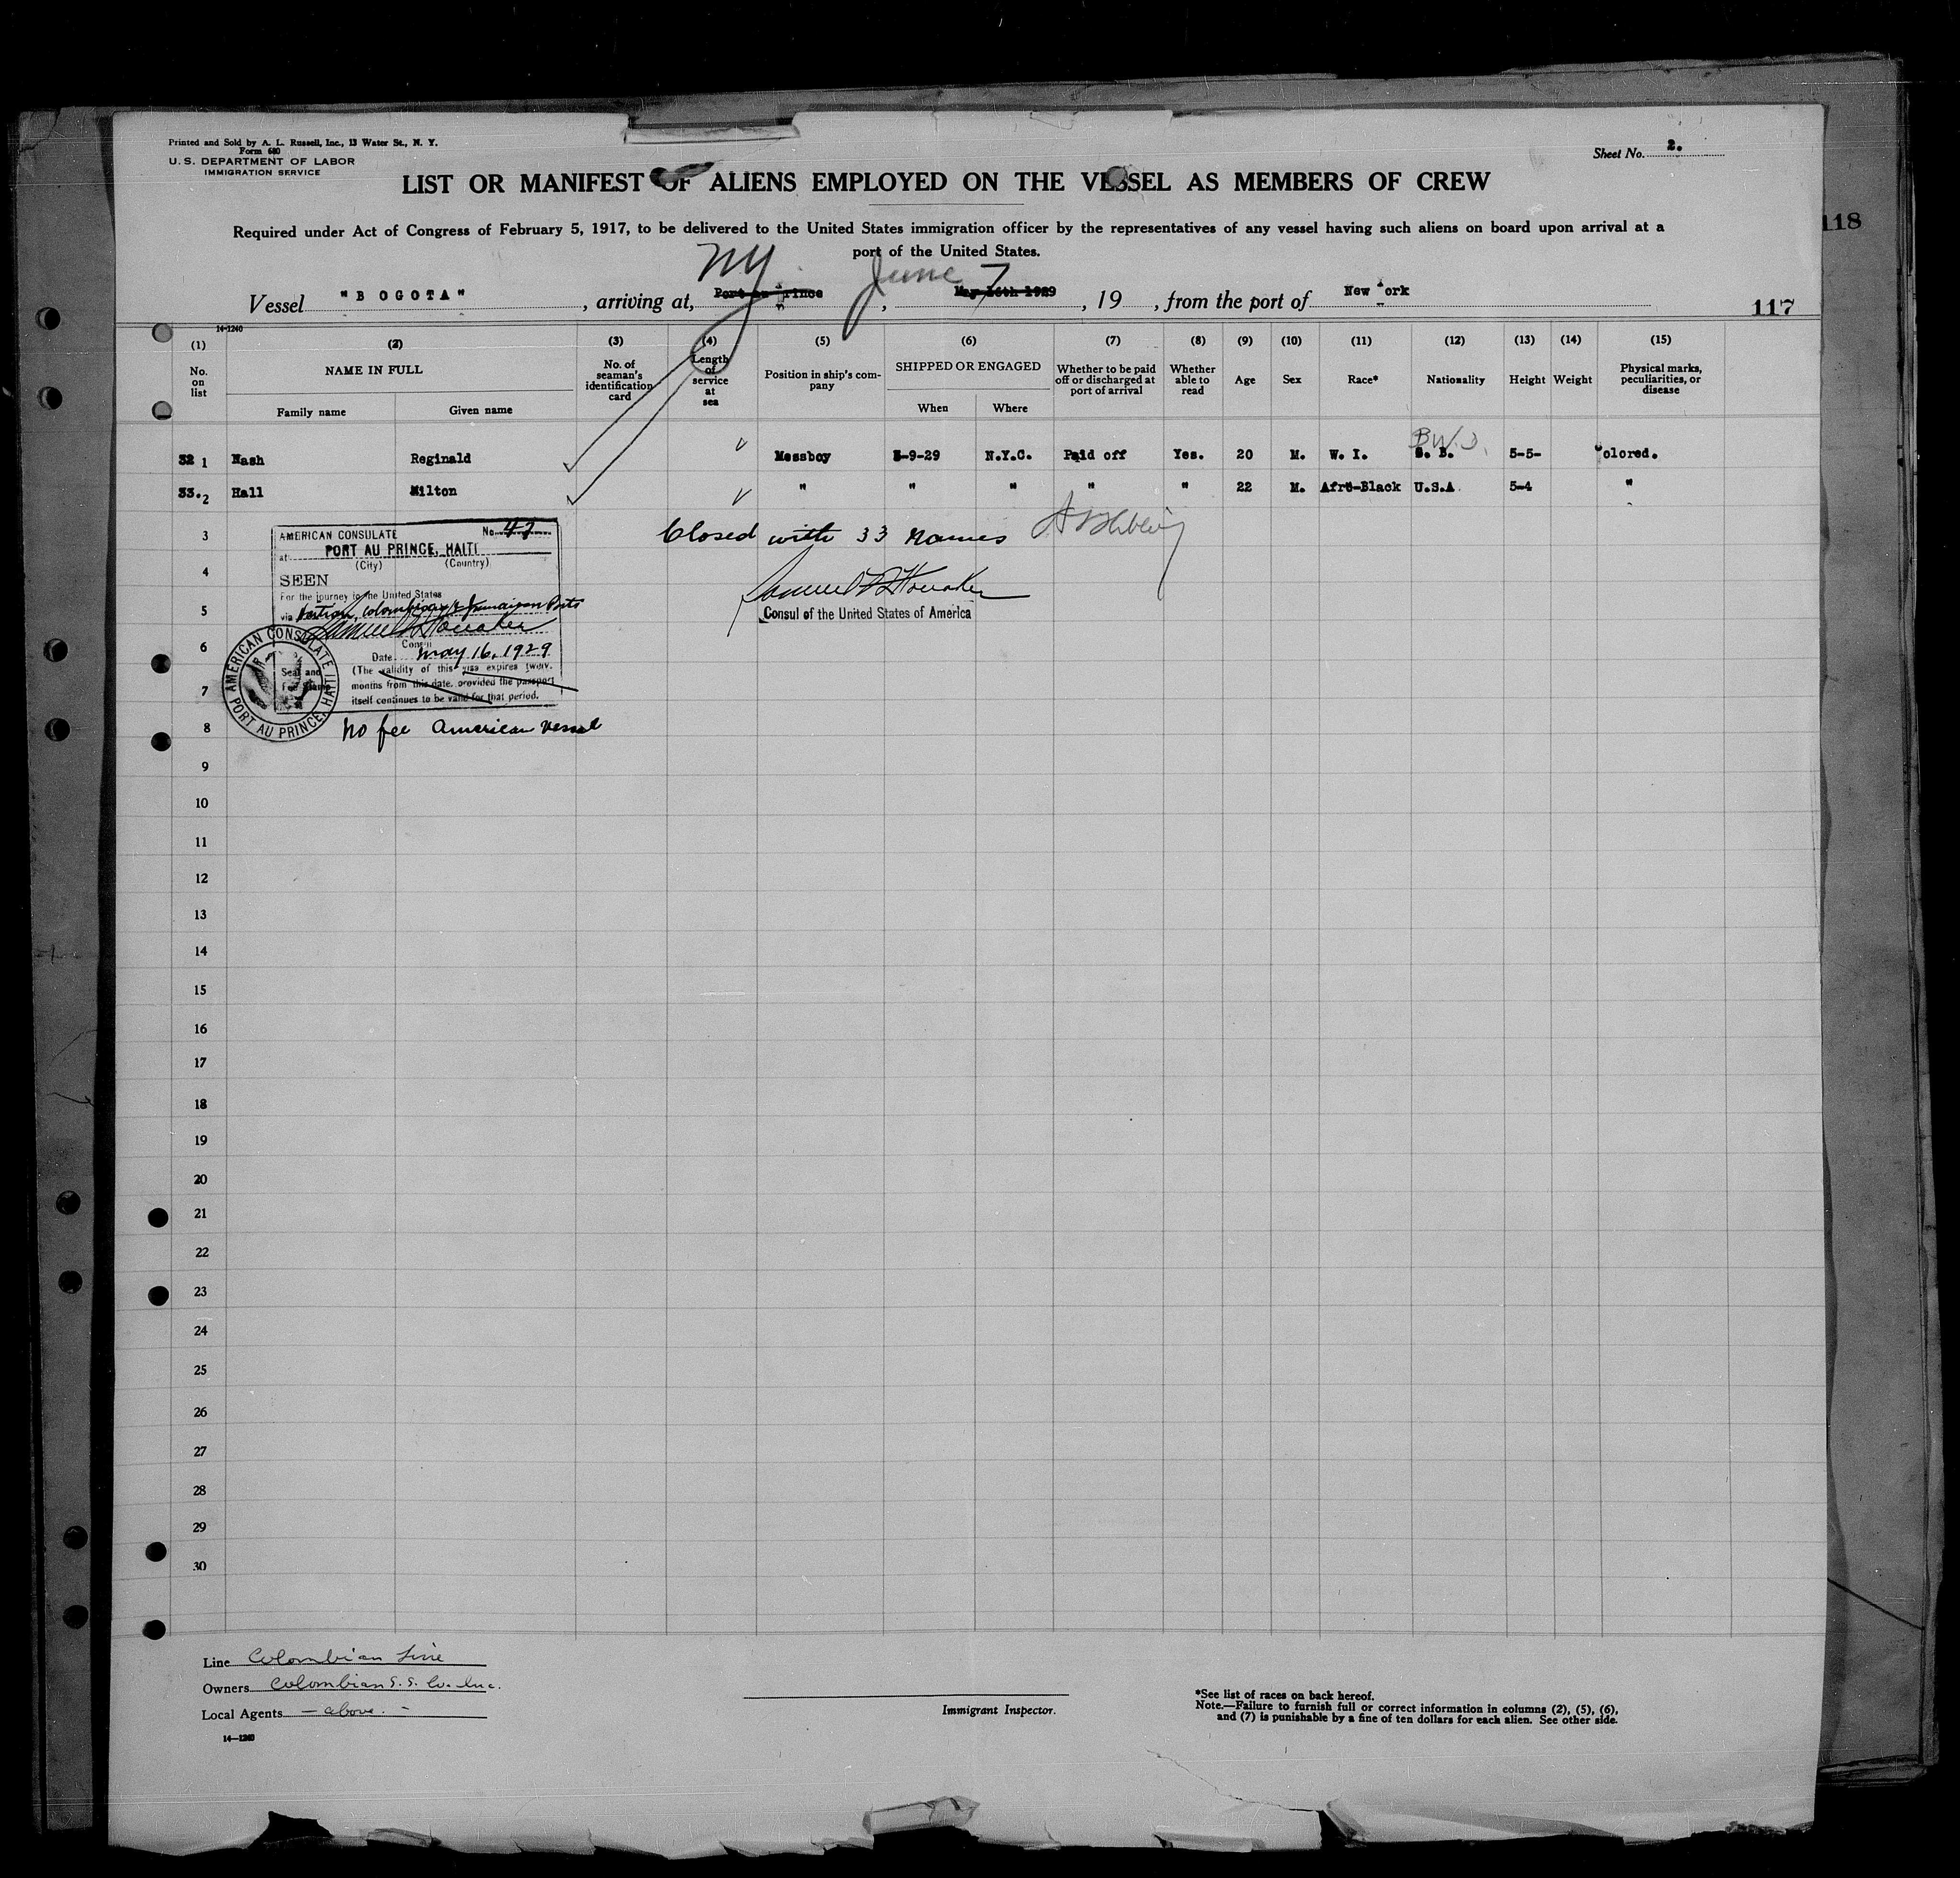 Printed and Sold by A. L. Russell, Inc., 13 Water St., N. Y.
Form 680
U. S. DEPARTMENT OF LABOR
IMMIGRATION SERVICE
Sheet No. 2.
LIST OR MANIFEST OF ALIENS EMPLOYED ON THE VESSEL AS MEMBERS OF CREW
118
Required under Act of Congress of February 5, 1917, to be delivered to the United States immigration officer by the representatives of any vessel having such aliens on board upon arrival at a
port of the United States.
NY June 7
Vessel "BOGOTA", arriving at, Port au Prince, May 16th 1929, 19 , from the port of New York
117
14-1240
(1) (2) (3) (4) (5) (6) (7) (8) (9) (10) (11) (12) (13) (14) (15)
No. on list
NAME IN FULL
Family name
Given name
No. of seaman's identification card
Length of service at sea
Position in ship's company
SHIPPED OR ENGAGED
When
Where
Whether to be paid off or discharged at port of arrival
Whether able to read
Age
Sex
Race*
Nationality
Height
Weight
Physical marks, peculiarities, or disease
B.W.I.
32 1 Nash Reginald Messboy 5-9-29 N.Y.C. Paid off Yes. 20 M. W. I. 5-5- Colored.
33. 2 Hall Milton " " " " " 22 M. Afro-Black U.S.A. 5-4 "
3
Closed with 33 Names
4
5
6
7
8
AMERICAN CONSULATE No. 47
at PORT AU PRINCE, HAITI
(City) (Country)
SEEN
For the journey to the United States
via Haitian, Colombian & Jamaican Ports
Consul
Date May 16, 1929
(The validity of this visa expires twelve
months from this date, provided the passport
itself continues to be valid for that period.
Seal and
AMERICAN CONSULATE
PORT AU PRINCE, HAITI
Consul of the United States of America
No fee American vessel
9
10
11
12
13
14
15
16
17
18
19
20
21
22
23
24
25
26
27
28
29
30
Line Colombian Line
Owners Colombian S. S. Co. Inc.
Local Agents — above. -
14—1240
Immigrant Inspector.
*See list of races on back hereof.
Note.—Failure to furnish full or correct information in columns (2), (5), (6),
and (7) is punishable by a fine of ten dollars for each alien. See other side.